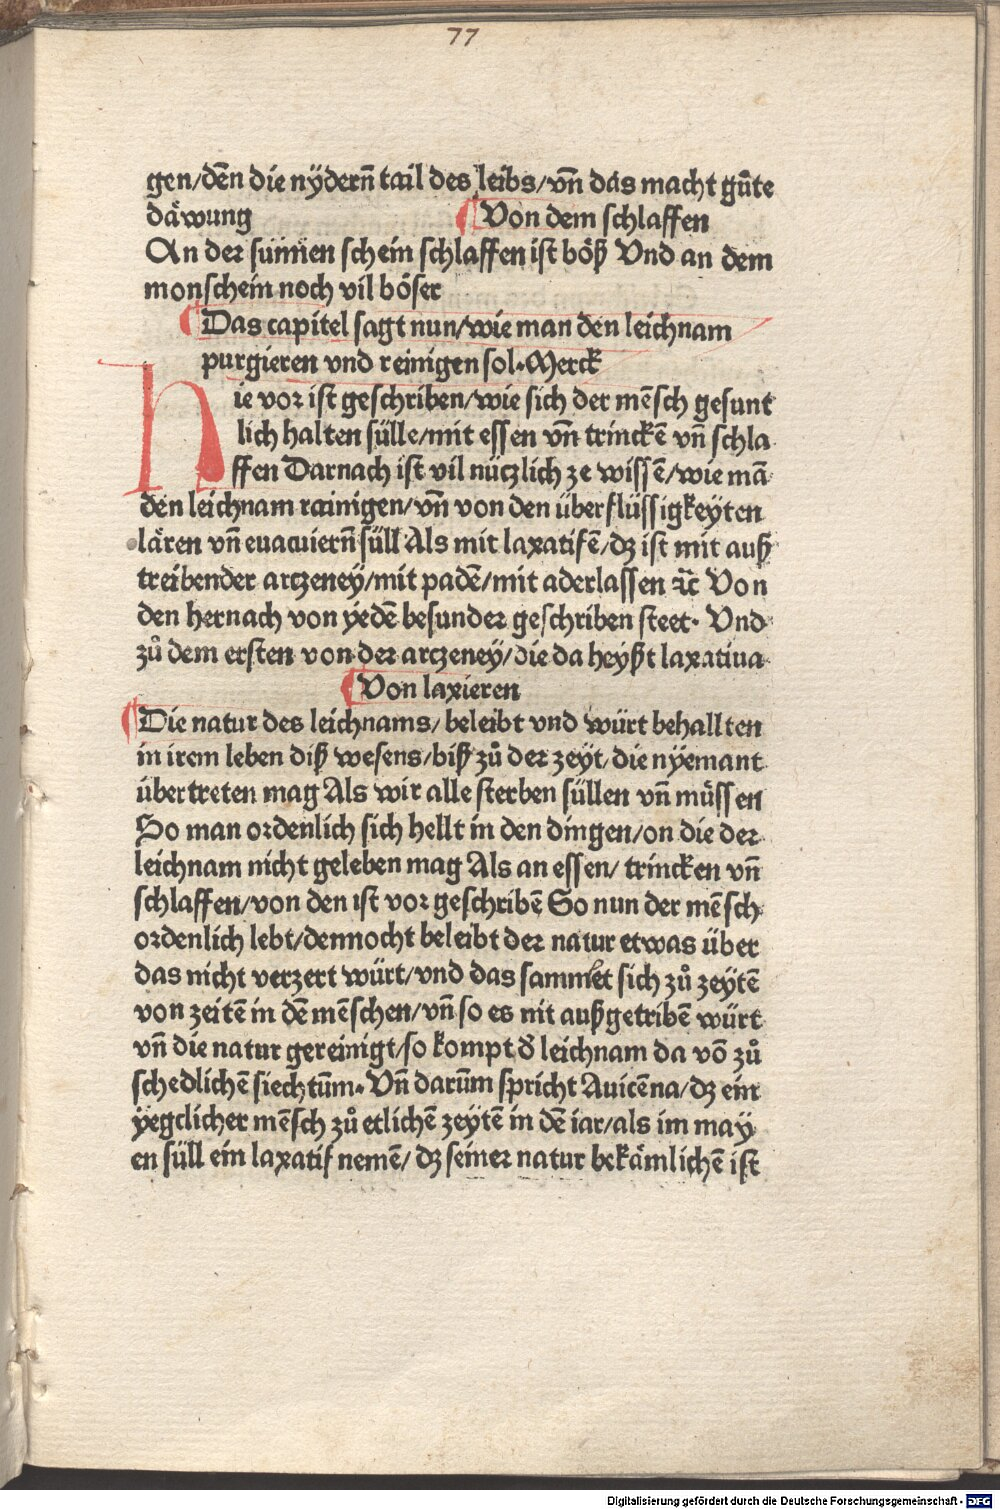 77
gen/deñ die nÿdern̄ tail des leibs/vn̄ das macht gůte
däwung ¶ Von dem schlaffen
An der sunnen schein schlaffen ist böß Vnd an dem
monschein noch vil böser
¶ Das capitel sagt nun/wie man den leichnam
purgieren vnd reinigen sol. Merck
Hie vor ist geschriben/wie sich der mēsch gesunt
lich halten sülle/mit essen vn̄ trinckē vn̄ schla
ffen Darnach ist vil nüczlich ze wissē/wie mā
den leichnam rainigen/vn̄ von den überflüssigkeyten
lären vn̄ euacuiern̄ süll Als mit laxatifē/dꝫ ist mit auß
treibender arczeneÿ/mit padē/mit aderlassen ꝛc̄ Von
den hernach von ÿedē besunder geschriben steet. Vnd
zů dem ersten von der arczeneÿ/die da heyßt laxatiua
¶ Von laxieren
¶ Die natur des leichnams/beleibt vnd würt behallten
in irem leben diß wesens/biß zů der zeyt/die nÿemant
übertreten mag Als wir alle sterben süllen vn̄ müssen
So man ordenlich sich hellt in den dingen/on die der
leichnam nicht geleben mag Als an essen/trincken vn̄
schlaffen/von den ist vor geschribē So nun der mēsch
ordenlich lebt/dennocht beleibt der natur etwas über
das nicht verzert würt/vnd das sammlet sich zů zeytē
von zeitē in dē mēschen/vn̄ so es nit außgetribē würt
vn̄ die natur gereinigt/so kompt d̕ leichnam da vō zů
schedlichē siechtūm. Vn̄ darūm spricht Auicēna/dꝫ ein
ÿegclicher mēsch zů etlichē zeÿtē in dē iar/als im may
en süll ein laxatif nemē/dꝫ seiner natur bekämlichē ist
Digitalisierung gefördert durch die Deutsche Forschungsgemeinschaft - DFG